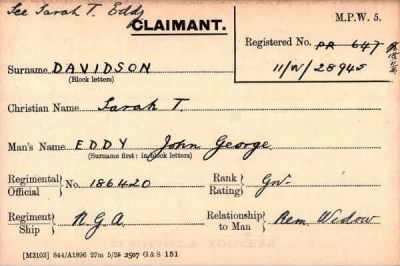 See Sarah T. Eddy
CLAIMANT.
M.P.W. 5.
Registered No. PR 647
11/W/28945
Surname DAVIDSON
(Block letters)
Christian Name Sarah T.
Man's Name EDDY John George.
(Surname first: in block letters)
Regimental Official } No. 186420 Rank Rating } Gnr
Regiment Ship } R.G.A. Relationship to Man } Rem. Widow
[M3103] 844/A1896 27m 5/28 2507 G & S 151